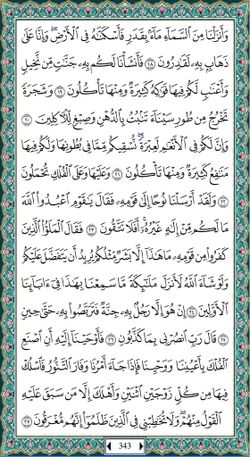 وَأَنزَلْنَا مِنَ ٱلسَّمَآءِ مَآءًۢ بِقَدَرٍ فَأَسْكَنَّٰهُ فِى ٱلْأَرْضِ ۖ وَإِنَّا عَلَىٰ
ذَهَابٍۭ بِهِۦ لَقَٰدِرُونَ ١٨ فَأَنشَأْنَا لَكُم بِهِۦ جَنَّٰتٍ مِّن نَّخِيلٍ
وَأَعْنَٰبٍ لَّكُمْ فِيهَا فَوَٰكِهُ كَثِيرَةٌ وَمِنْهَا تَأْكُلُونَ ١٩ وَشَجَرَةً
تَخْرُجُ مِن طُورِ سَيْنَآءَ تَنۢبُتُ بِٱلدُّهْنِ وَصِبْغٍ لِّلْءَاكِلِينَ ٢٠
وَإِنَّ لَكُمْ فِى ٱلْأَنْعَٰمِ لَعِبْرَةً ۖ نُّسْقِيكُم مِّمَّا فِى بُطُونِهَا وَلَكُمْ فِيهَا
مَنَٰفِعُ كَثِيرَةٌ وَمِنْهَا تَأْكُلُونَ ٢١ وَعَلَيْهَا وَعَلَى ٱلْفُلْكِ تُحْمَلُونَ
٢٢ وَلَقَدْ أَرْسَلْنَا نُوحًا إِلَىٰ قَوْمِهِۦ فَقَالَ يَٰقَوْمِ ٱعْبُدُوا۟ ٱللَّهَ
مَا لَكُم مِّنْ إِلَٰهٍ غَيْرُهُۥٓ ۖ أَفَلَا تَتَّقُونَ ٢٣ فَقَالَ ٱلْمَلَؤُا۟ ٱلَّذِينَ
كَفَرُوا۟ مِن قَوْمِهِۦ مَا هَٰذَآ إِلَّا بَشَرٌ مِّثْلُكُمْ يُرِيدُ أَن يَتَفَضَّلَ عَلَيْكُمْ
وَلَوْ شَآءَ ٱللَّهُ لَأَنزَلَ مَلَٰٓئِكَةً مَّا سَمِعْنَا بِهَٰذَا فِىٓ ءَابَآئِنَا
ٱلْأَوَّلِينَ ٢٤ إِنْ هُوَ إِلَّا رَجُلٌۢ بِهِۦ جِنَّةٌ فَتَرَبَّصُوا۟ بِهِۦ حَتَّىٰ حِينٍ
٢٥ قَالَ رَبِّ ٱنصُرْنِى بِمَا كَذَّبُونِ ٢٦ فَأَوْحَيْنَآ إِلَيْهِ أَنِ ٱصْنَعِ
ٱلْفُلْكَ بِأَعْيُنِنَا وَوَحْيِنَا فَإِذَا جَآءَ أَمْرُنَا وَفَارَ ٱلتَّنُّورُ ۙ فَٱسْلُكْ
فِيهَا مِن كُلٍّ زَوْجَيْنِ ٱثْنَيْنِ وَأَهْلَكَ إِلَّا مَن سَبَقَ عَلَيْهِ
ٱلْقَوْلُ مِنْهُمْ ۖ وَلَا تُخَٰطِبْنِى فِى ٱلَّذِينَ ظَلَمُوٓا۟ ۖ إِنَّهُم مُّغْرَقُونَ ٢٧
343